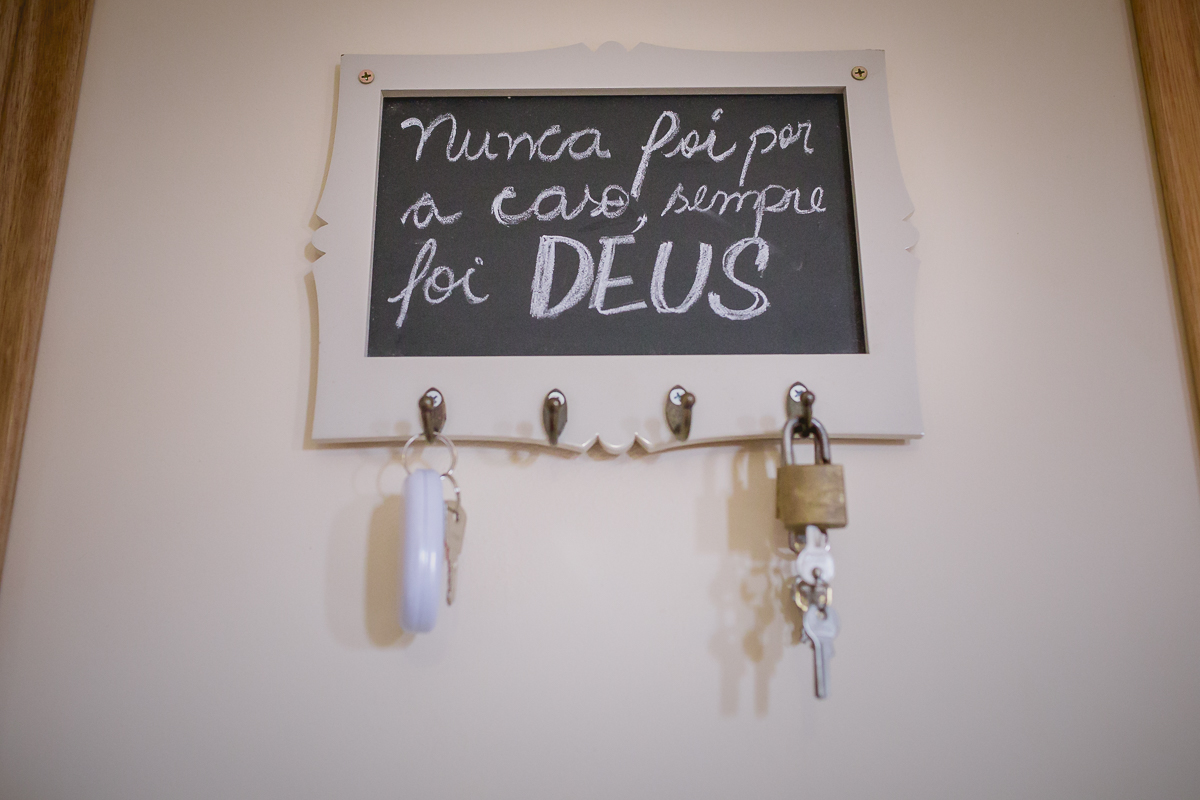 Nunca foi por
a caso, sempre
foi DEUS